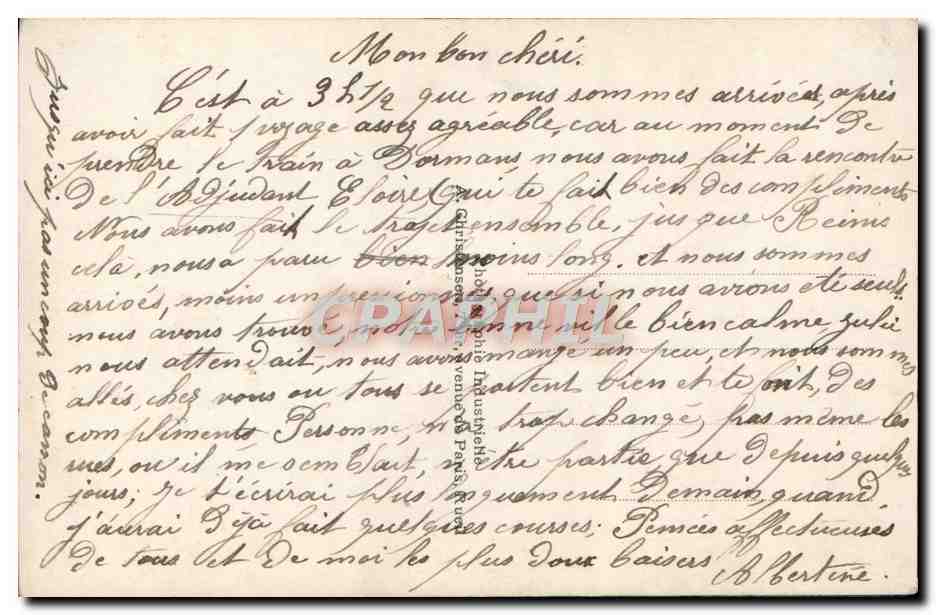 Mon bon chéri.
C'est à 3 h 1/2 que nous sommes arrivés, après
avoir fait 1 voyage assez agréable, car au moment de
prendre le train à Dormans, nous avons fait la rencontre
de l'Adjudant Eloire (qui te fait bien des compliments
Nous avons fait le trajet ensemble, jusque Reims
celà, nous a paru bien moins long. et nous sommes
arrivés, moins que si nous avions été seuls.
nous avons trouvé, notre bonne ville bien calme, Julie
nous attendait, nous avons mangé un peu, et nous sommes
allés, chez vous ou tous se portent bien et te font, des
compliments Personne, n'a trop changé, pas même les
rues, ou il me semblait, n'être partie que depuis quelques
jours, je t'écrirai plus longuement Demain, quand
j'aurai déjà fait quelques courses; Pensées affectueuses
de tous et de moi les plus doux baisers
Albertine.
Jusqu'ici pas un coup de canon.
Photographie Industrielle
A. Christensen, avenue de Paris, Rueil
CPARAMA